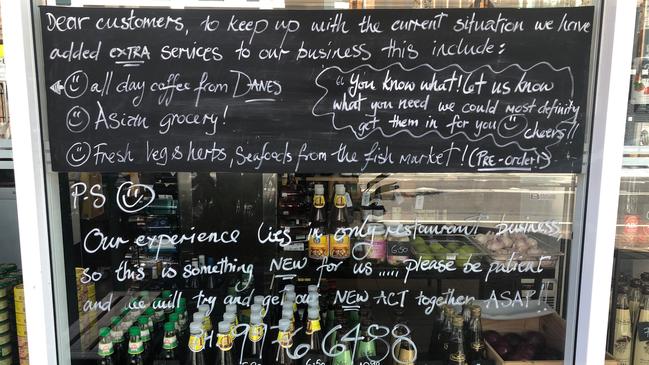 Dear customers, to keep up with the current situation we have
added EXTRA services to our business this include:
all day coffee from DANES
Asian grocery!
Fresh veg & herbs, Seafoods from the fish market! (PRE-order!)
"You know what! Let us know
what you need we could most definity
get them in for you cheers!!
P.S
Our experience lies in only restaurant business
so this is something NEW for us ..... please be patient
and we will try and get our NEW ACT together ASAP!!
9976 6488